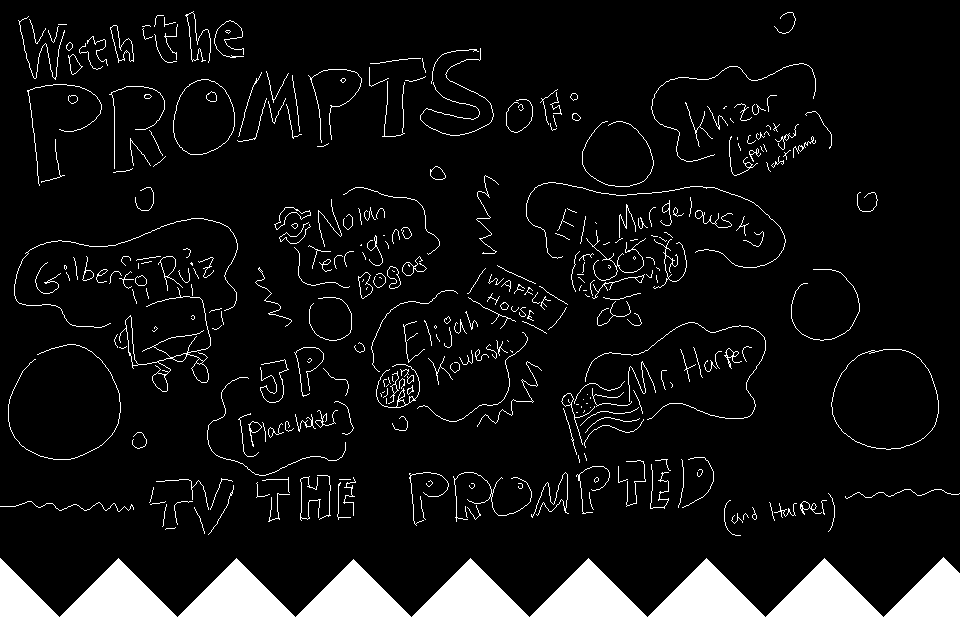 With the
PROMPTS OF:
Khizar
(i can't
spell your
last name)
Nolan
Terrigino
Bogos
Eli Margelowsky
Gilberto Ruiz
WAFFLE
HOUSE
Elijah
Kowenski
JP
[Placeholder]
Mr. Harper
TV THE PROMPTED
(and Harper)